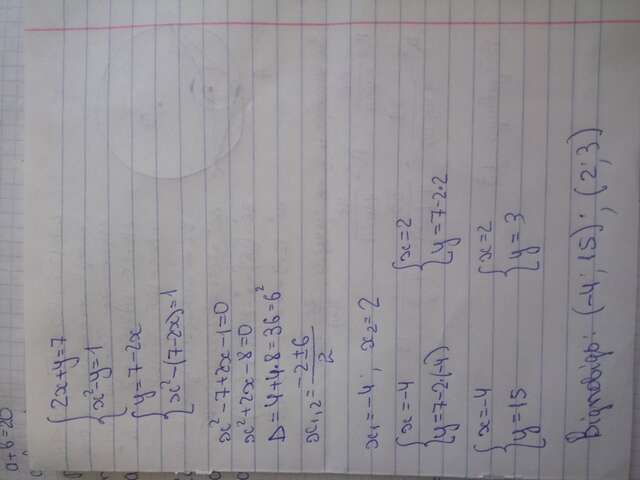 a+b=20
2x+y=7
x²-y=1
y=7-2x
x²-(7-2x)=1
x²-7+2x-1=0
x²+2x-8=0
D=4+4·8=36=6²
x₁,₂=(-2±6)/2
x₁=-4; x₂=2
x=-4 x=2
y=7-2·(-4) y=7-2·2
x=-4 x=2
y=15 y=3
Відповідь: (-4; 15); (2; 3)